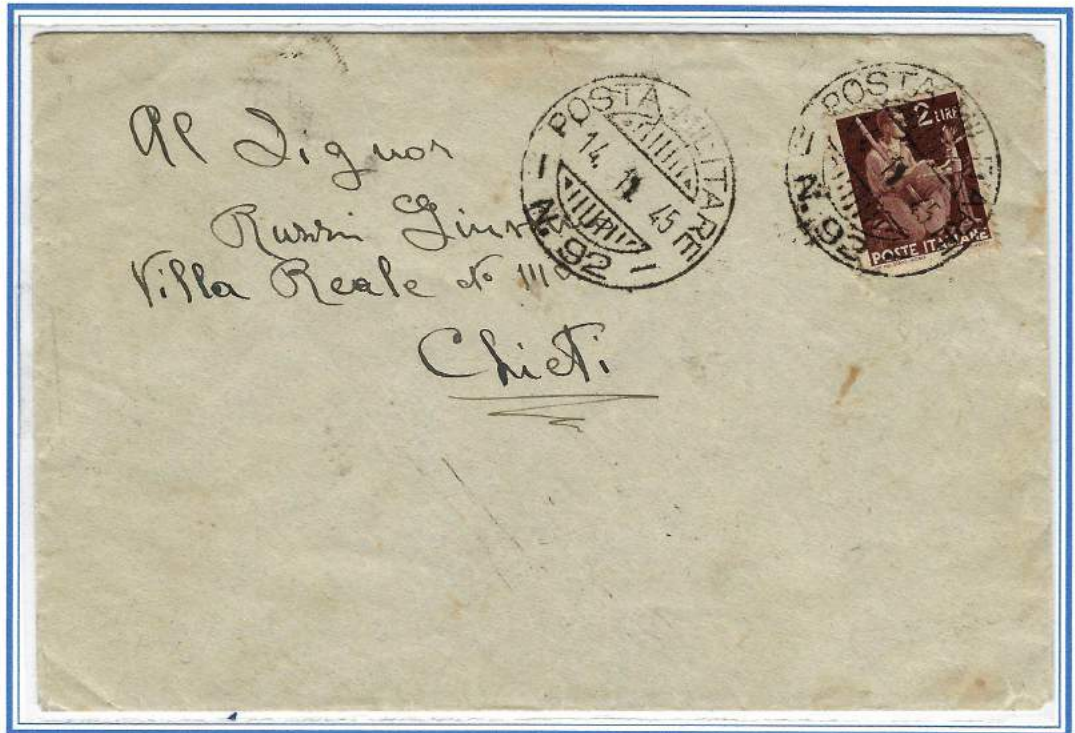 Al Signor
Villa Reale
Chieti
POSTA MILITARE
14 11 45
N. 92
POSTA MILITARE
N. 92
2 LIRE
POSTE ITALIANE